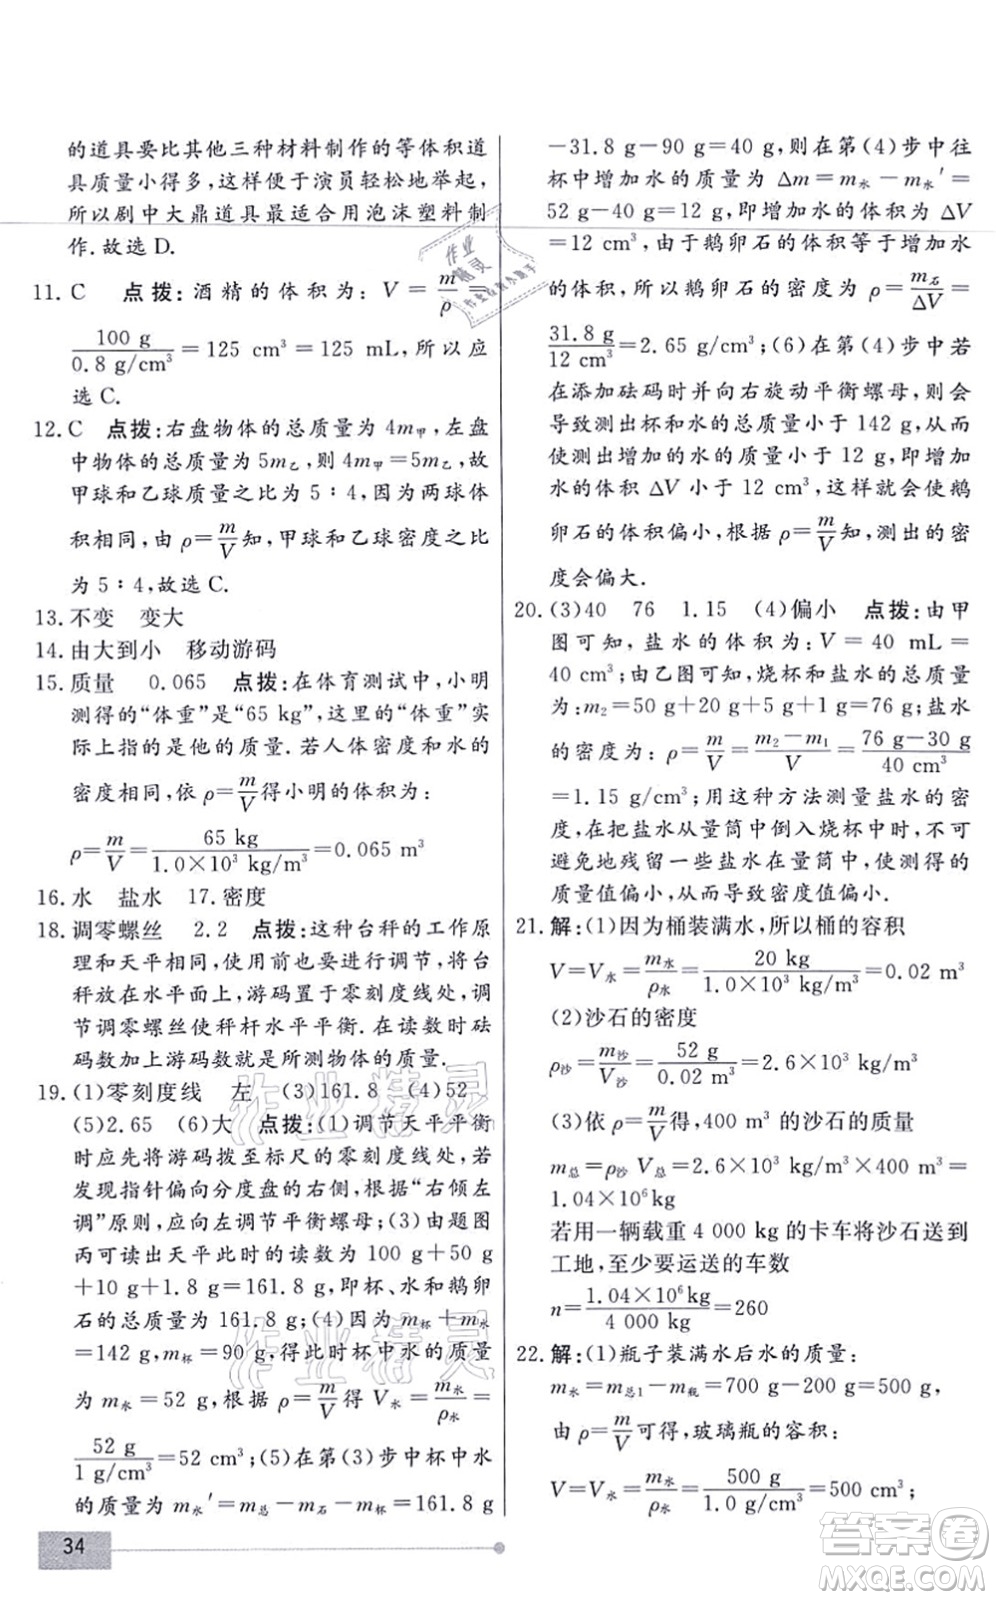 的道具要比其他三种材料制作的等体积道
具质量小得多,这样便于演员轻松地举起,
所以剧中大鼎道具最适合用泡沫塑料制
作.故选 D.
11. C 点拨:酒精的体积为:V=m/ρ=
100 g/0.8 g/cm³=125 cm³=125 mL,所以应
选 C.
12. C 点拨:右盘物体的总质量为 4m甲,左盘
中物体的总质量为 5m乙,则 4m甲=5m乙,故
甲球和乙球质量之比为 5∶4,因为两球体
积相同,由 ρ=m/V知,甲球和乙球密度之比
为 5∶4,故选 C.
13. 不变 变大
14. 由大到小 移动游码
15. 质量 0.065 点拨:在体育测试中,小明
测得的“体重”是“65 kg”,这里的“体重”实
际上指的是他的质量.若人体密度和水的
密度相同,依 ρ=m/V得小明的体积为:
ρ=m/V=65 kg/1.0×10³ kg/m³=0.065 m³
16. 水 盐水 17. 密度
18. 调零螺丝 2.2 点拨:这种台秤的工作原
理和天平相同,使用前也要进行调节,将台
秤放在水平面上,游码置于零刻度线处,调
节调零螺丝使秤杆水平平衡.在读数时砝
码数加上游码数就是所测物体的质量.
19. (1)零刻度线 左 (3)161.8 (4)52
(5)2.65 (6)大 点拨:(1)调节天平平衡
时应先将游码拨至标尺的零刻度线处,若
发现指针偏向分度盘的右侧,根据“右倾左
调”原则,应向左调节平衡螺母;(3)由题图
丙可读出天平此时的读数为 100 g+50 g
+10 g+1.8 g=161.8 g,即杯、水和鹅卵
石的总质量为 161.8 g;(4)因为 m杯+m水
=142 g,m杯=90 g,得此时杯中水的质量
为 m水=52 g,根据 ρ=m/V得 V水=m水/ρ水=
52 g/1 g/cm³=52 cm³;(5)在第(3)步中杯中水
的质量为 m水′=m总−m石−m杯=161.8 g
34
−31.8 g−90 g=40 g,则在第(4)步中往
杯中增加水的质量为 Δm=m水−m水′=
52 g−40 g=12 g,即增加水的体积为 ΔV
=12 cm³,由于鹅卵石的体积等于增加水
的体积,所以鹅卵石的密度为 ρ=m石/ΔV=
31.8 g/12 cm³=2.65 g/cm³;(6)在第(4)步中若
在添加砝码时并向右旋动平衡螺母,则会
导致测出杯和水的总质量小于 142 g,即
测出增加的水的质量小于 12 g,即测出增
加水的体积 ΔV 小于 12 cm³,这样就会使鹅
卵石的体积偏小,根据 ρ=m/V知,测出的密
度会偏大.
20. (3)40 76 1.15 (4)偏小 点拨:由甲
图可知,盐水的体积为:V=40 mL=
40 cm³;由乙图可知,烧杯和盐水的总质量
为:m2=50 g+20 g+5 g+1 g=76 g;盐水
的密度为:ρ=m/V=m2−m1/V=76 g−30 g/40 cm³
=1.15 g/cm³;用这种方法测量盐水的密
度,在将盐水从量筒中倒入烧杯中时,不可
避免地残留一些盐水在量筒中,使测得的
质量值偏小,从而导致密度值偏小.
21. 解:(1)因为桶装满水,所以桶的容积
V=V水=m水/ρ水=20 kg/1.0×10³ kg/m³=0.02 m³
(2)沙石的密度
ρ沙=m沙/V沙=52 g/0.02 m³=2.6×10³ kg/m³
(3)依 ρ=m/V得,400 m³ 的沙石的质量
m总=ρ沙 V总=2.6×10³ kg/m³×400 m³=
1.04×10⁶ kg
若用一辆载重 4 000 kg的卡车将沙石送到
工地,至少要运送的车数
n=1.04×10⁶ kg/4 000 kg=260
22. 解:(1)瓶子装满水后水的质量:
m水=m总1−m瓶=700 g−200 g=500 g,
由 ρ=m/V可得,玻璃瓶的容积:
V=V水=m水/ρ水=500 g/1.0 g/cm³=500 cm³;
作业精灵
作业精灵
答案圈
MXQE.COM